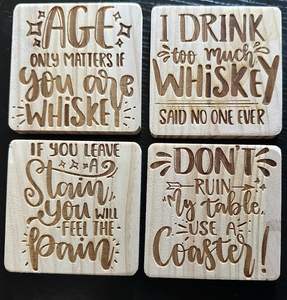 AGE
ONLY MATTERS IF
you are
WHISKEY
I DRINK
too much
WHISKEY
SAID NO ONE EVER
IF YOU LEAVE
A
Stain,
you WILL
FEEL THE
pain
DON'T
RUIN
My table,
USE A
Coaster!